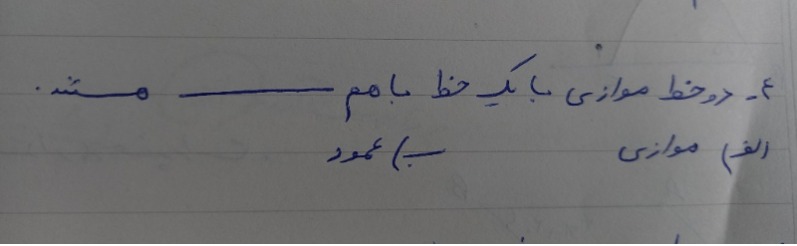 ۴- دو خط موازی با یک خط با هم ــــــــــ هستند.
الف) موازی ب) عمود